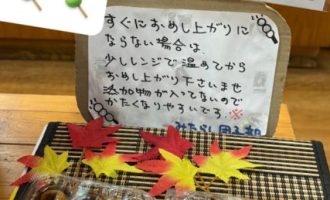 すぐにおめし上がりに
ならない場合は、
少しレンジで温めてから
おめし上がり下さいませ
添加物が入ってないので
かたくなりやすいです。※
みたらし